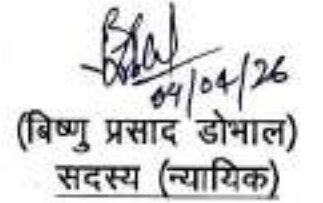 04/04/26
(बिष्णु प्रसाद डोभाल)
सदस्य (न्यायिक)